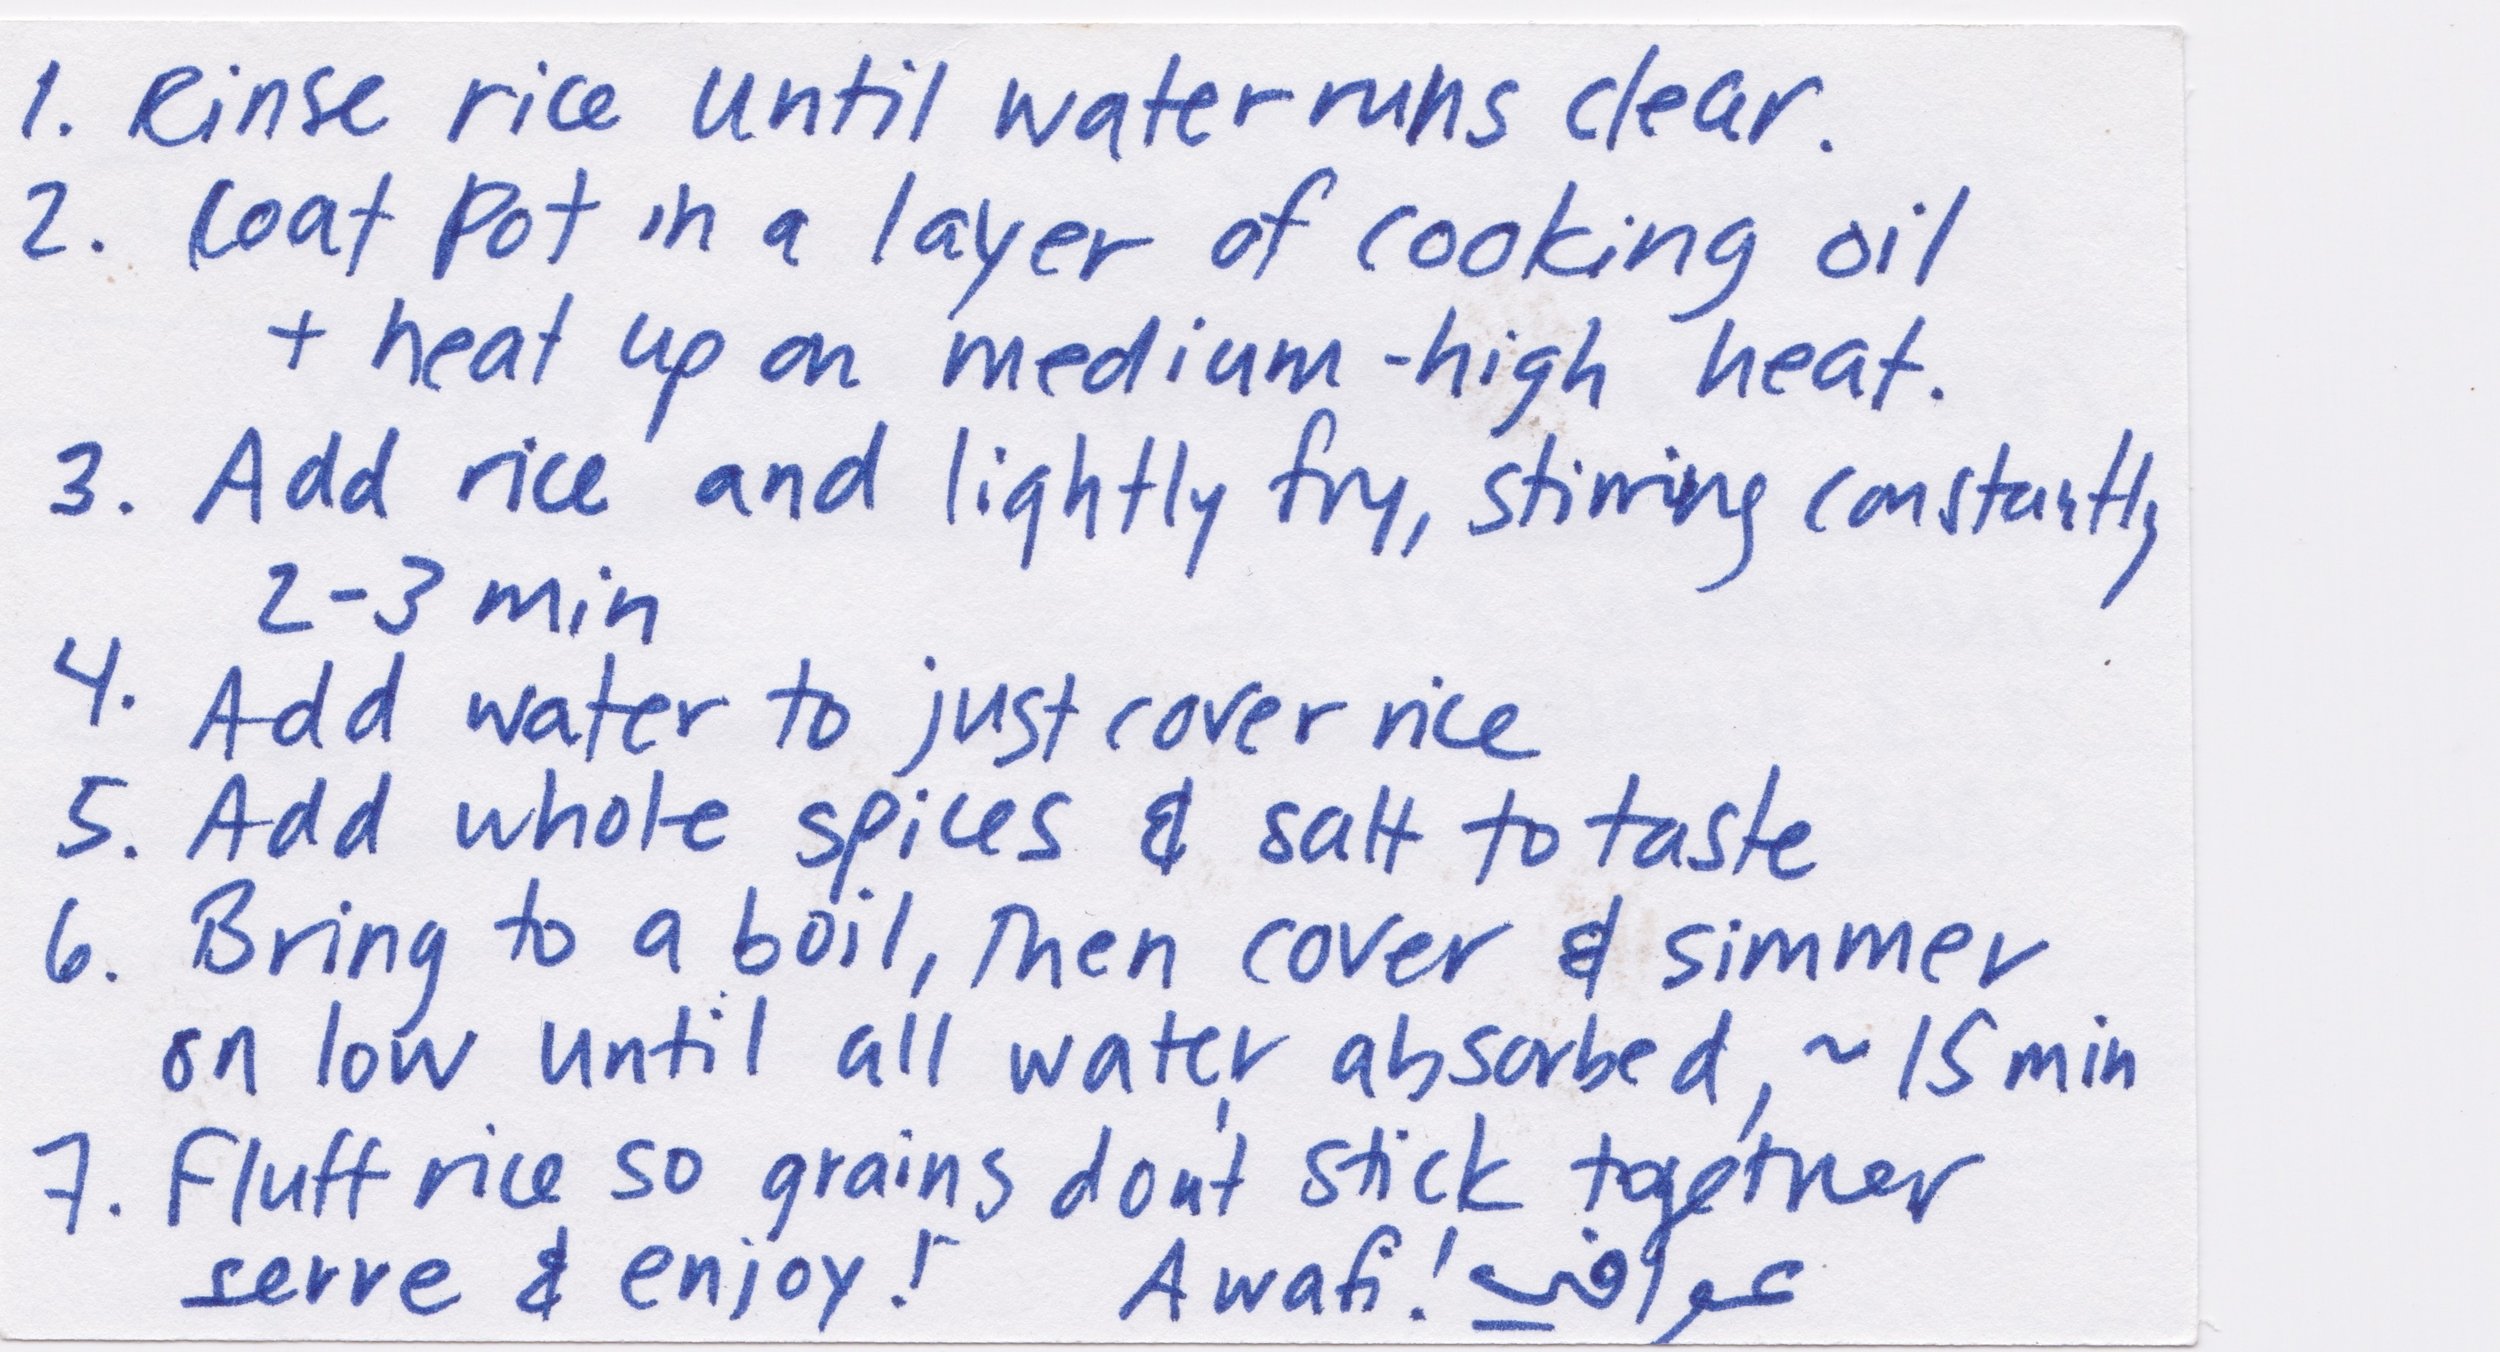 1. Rinse rice until water runs clear.
2. Coat pot in a layer of cooking oil
+ heat up on medium-high heat.
3. Add rice and lightly fry, stirring constantly
2-3 min
4. Add water to just cover rice
5. Add whole spices & salt to taste
6. Bring to a boil, then cover & simmer
on low until all water absorbed, ~15 min
7. Fluff rice so grains don't stick together
serve & enjoy! Awafi! عوافي